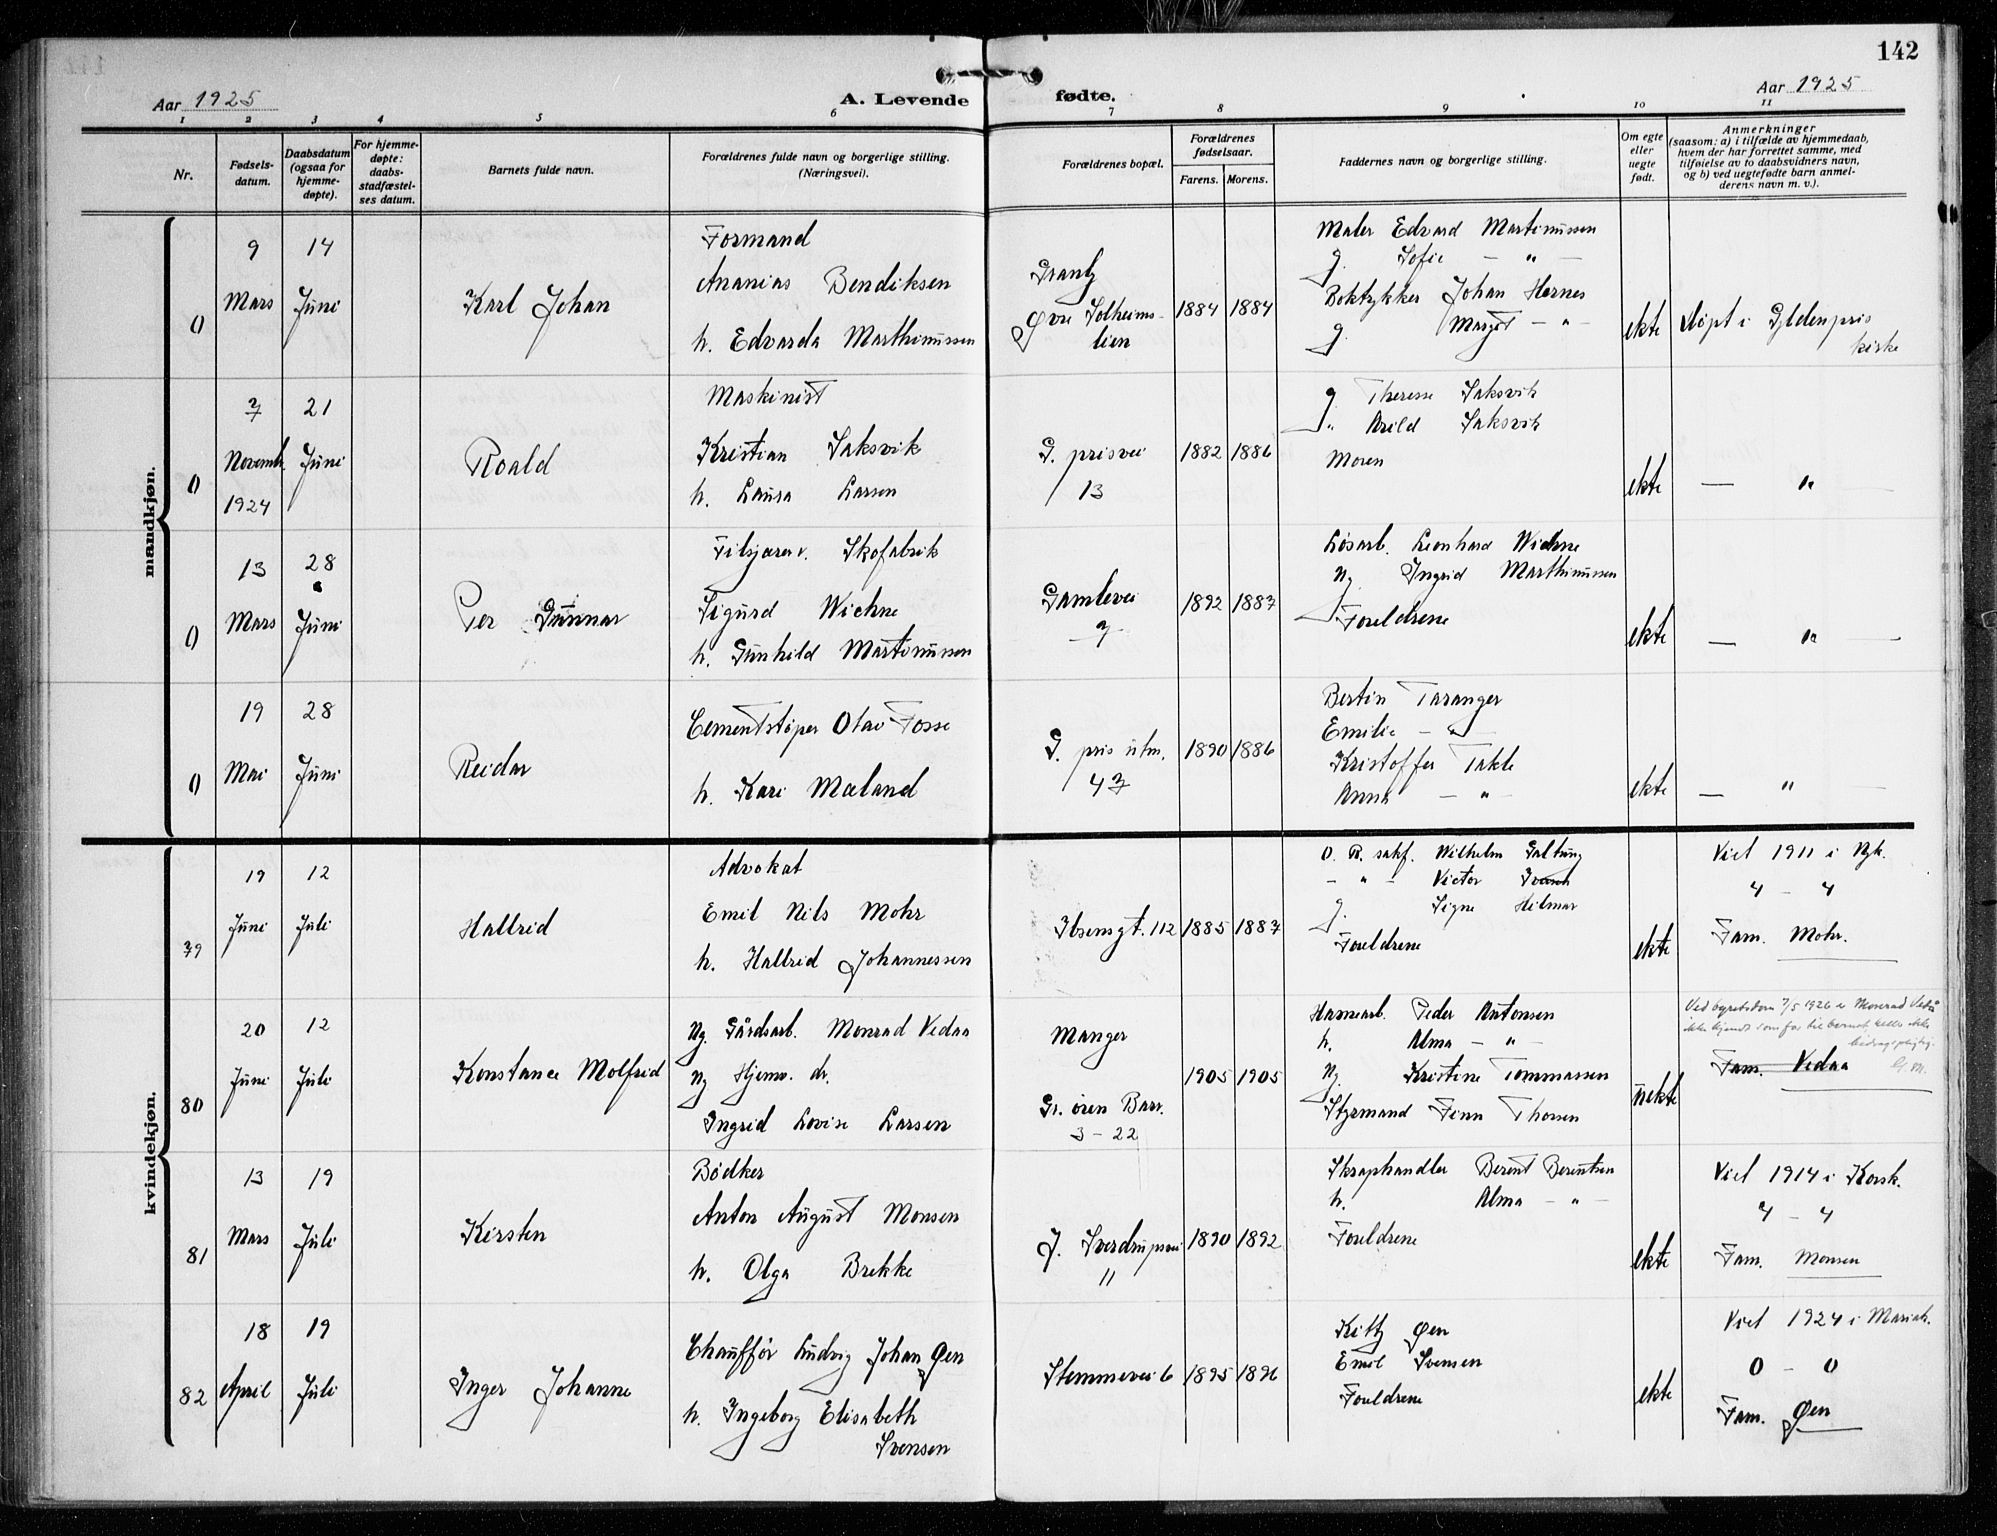 142
Aar 1925
A. Levende fødte.
Aar 1925
1 2 3 4 5 6 7 8 9 10 11
Nr.
Fødsels-
datum.
Daabsdatum
(ogsaa for
hjemme-
døpte).
For hjemme-
døpte:
daabs-
stadfæstel-
ses datum.
Barnets fulde navn.
Forældrenes fulde navn og borgerlige stilling.
(Næringsvei).
Forældrenes bopæl.
Forældrenes
fødselsaar.
Farens. Morens.
Faddernes navn og borgerlige stilling.
Om egte
eller
uegte
født.
Anmerkninger
(saasom: a) i tilfælde av hjemmedaab,
hvem der har forrettet samme, med
tilføielse av to daabsvidners navn,
og b) ved uegtefødte barn anmel-
derens navn m. v.).
mandkjøn.
0
9
Mars
14
Juni
Karl Johan
Formand
Ananias Bendiksen
h. Edvarda Marthinussen
Øvre Solheims-
lien
1884 1884
Maler Edvard Martinussen
g. Sofie — " —
Boktrykker Johan Hernes
g. Margit — " —
ekte
døpt i Gyldenpris
kirke
0
7
Novemb.
1924
21
Juni
Roald
Maskinist
Kristian Saksvik
h. Laura Larsen
G. prisvei
13
1882 1886
g. Therese Saksvik
" Arild Saksvik
Moren
ekte
— " —
0
13
Mars
28
Juni
Per Gunnar
Tilskjærer v. Skofabrik
Sigurd Wichne
h. Gunhild Martinussen
Gamlevei
7
1892 1887
Løsarb. Leonhard Wichne
Ug. Ingrid Marthinussen
Foreldrene
ekte
— " —
0
19
Mai
28
Juni
Reidar
Cementstøper Olav Fosse
h. Kari Mæland
G. pris utm.
47
1890 1886
Bertin Taranger
Emilie — " —
Kristoffer Takle
Anna — " —
ekte
— " —
kvindekjøn.
79
19
Juni
12
Juli
Hallrid
Advokat
Emil Nils Mohr
h. Hallrid Johannessen
Ibsensgt. 112
1885 1887
O. R. sakf. Wilhelm Galtung
— " — Victor
g. Signe Hilmar
Foreldrene
ekte
Viet 1911 i Nyk.
4 — 4
Fam. Mohr.
80
20
Juni
12
Juli
Konstance Molfrid
Ug. Gårdsarb. Monrad Vedaa
Ug Hjemv. dr.
Ingrid Lovise Larsen
Manger
St. øren Barr.
3 – 22
1905 1905
Havnearb. Peder Antonsen
h. Alma — " —
Ug. Kristine Tommassen
Styrmand Finn Thorsen
uekte
Ved byretsdom 7/5 1926 e Monrad Vedå
ikke kjendt som far til barnet, heller ikke
bidragspligtig.
Fam. Vedaa G. M.
81
13
Mars
19
Juli
Kirsten
Bødker
Anton August Monsen
h. Olga Brekke
J. Sverdrupsvei
11
1890 1892
Skraphandler Berent Berentsen
h. Alma — " —
Foreldrene
ekte
Viet 1914 i Korsk.
4 — 4
Fam. Monsen
82
18
April
19
Juli
Inger Johanne
Chauffør Ludvig Johan Øen
h. Ingeborg Elisabeth
Svensen
Stemmevei 6
1895 1896
Kitty Øen
Emil Svensen
Foreldrene
ekte
Viet 1924 i Mariak.
0 — 0
Fam. Øen